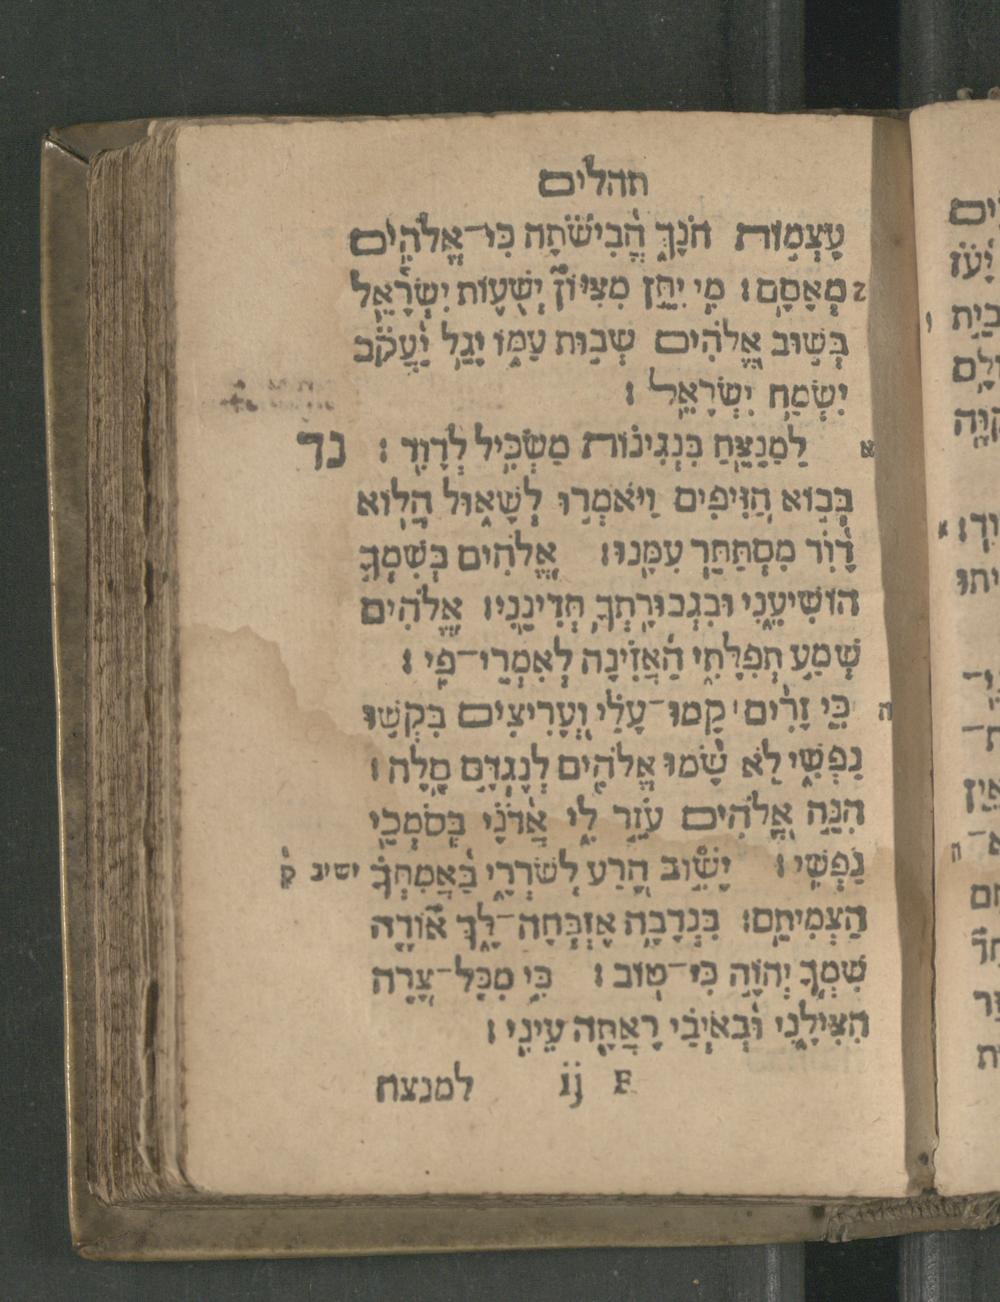 תהלים
עַצְמוֹת חֹנָךְ הֱבִישֹׁתָה כִּי־אֱלֹהִים
ז מְאָסָם׃ מִי יִתֵּן מִצִּיּוֹן יְשֻׁעוֹת יִשְׂרָאֵל
בְּשׁוּב אֱלֹהִים שְׁבוּת עַמּוֹ יָגֵל יַעֲקֹב
יִשְׂמַח יִשְׂרָאֵל׃
א לַמְנַצֵּחַ בִּנְגִינוֹת מַשְׂכִּיל לְדָוִד׃ נד
בְּבוֹא הַזִּיפִים וַיֹּאמְרוּ לְשָׁאוּל הֲלוֹא
דָוִד מִסְתַּתֵּר עִמָּנוּ׃ אֱלֹהִים בְּשִׁמְךָ
הוֹשִׁיעֵנִי וּבִגְבוּרָתְךָ תְּדִינֵנִי׃ אֱלֹהִים
שְׁמַע תְּפִלָּתִי הַאֲזִינָה לְאִמְרֵי־פִי׃
ה כִּי זָרִים קָמוּ־עָלַי וְעָרִיצִים בִּקְשׁוּ
נַפְשִׁי לֹא שָׂמוּ אֱלֹהִים לְנֶגְדָּם סֶלָה׃
הִנֵּה אֱלֹהִים עֹזֵר לִי אֲדֹנָי בְּסֹמְכֵי
נַפְשִׁי׃ יָשׁוֹב הָרַע לְשֹׁרְרָי בַּאֲמִתְּךָ ישיב ק
הַצְמִיתֵם׃ בִּנְדָבָה אֶזְבְּחָה־לָּךְ אוֹדֶה
שִּׁמְךָ יְהוָה כִּי־טוֹב׃ כִּי מִכָּל־צָרָה
הִצִּילָנִי וּבְאֹיְבַי רָאֲתָה עֵינִי׃
F ij למנצח